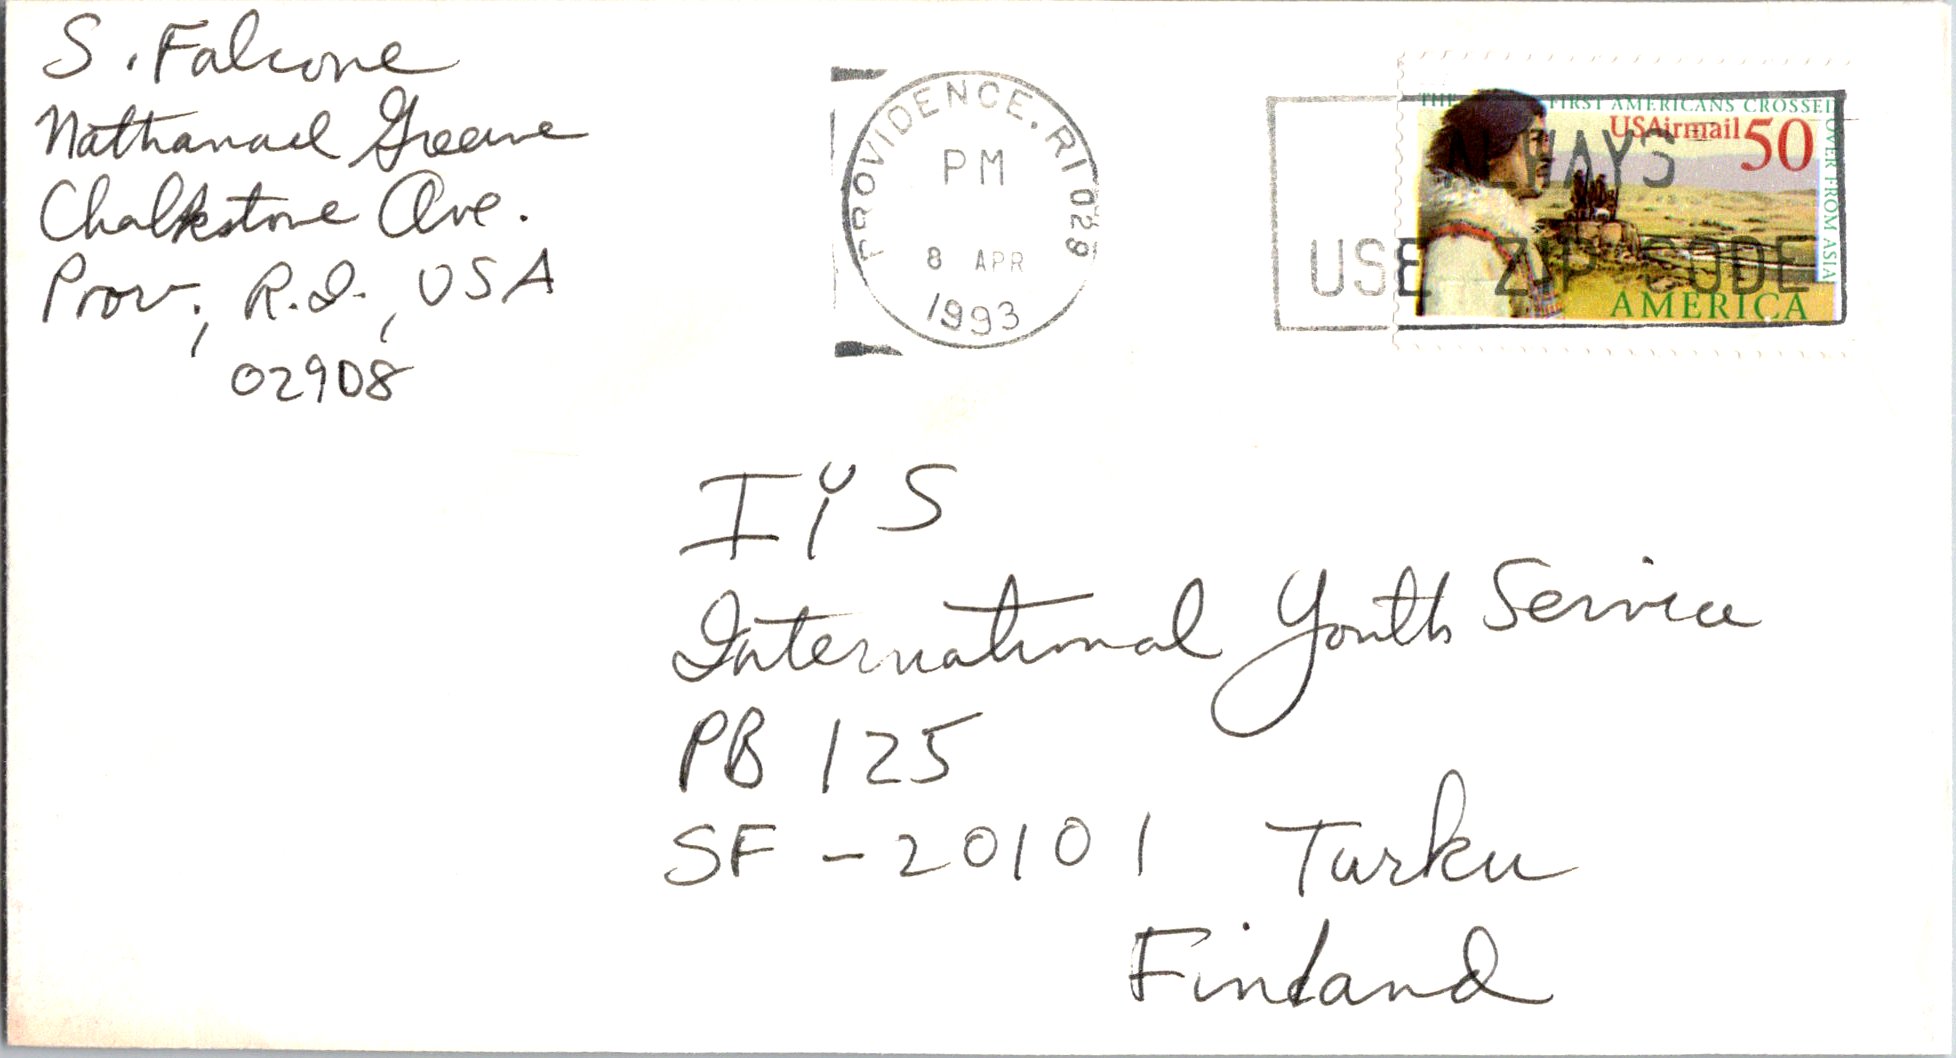 S. Falcone
Nathanael Greene
Chalkstone Ave.
Prov., R.I., USA
02908
PROVIDENCE, RI 028
PM
8 APR
1993
THE FIRST AMERICANS CROSSED OVER FROM ASIA
USAirmail 50
AMERICA
ALWAYS
USE ZIP CODE
IYS
International Youth Service
PB 125
SF - 20101 Turku
Finland